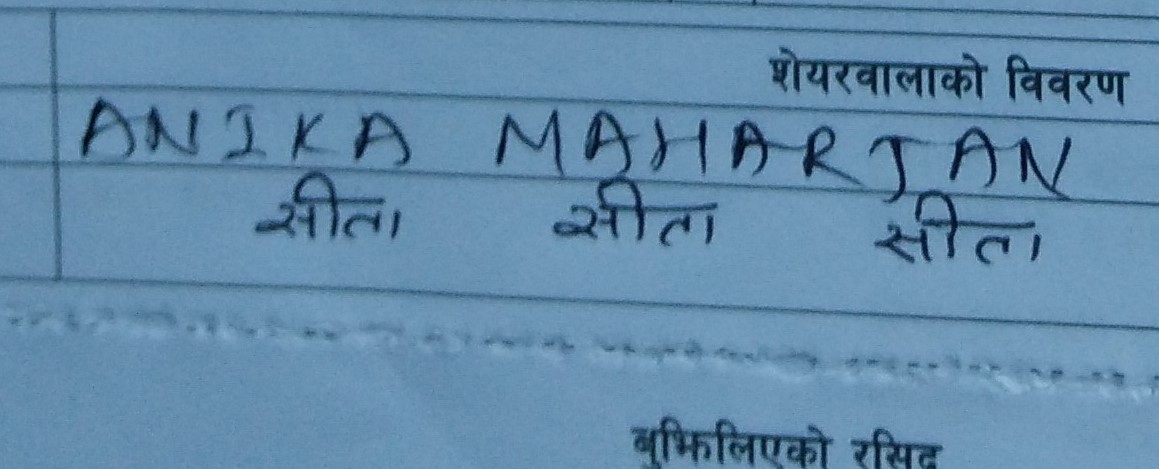 शेयरवालाको विवरण
ANIKA MAHARJAN
सीता सीता सीता
बुझिलिएको रसिद